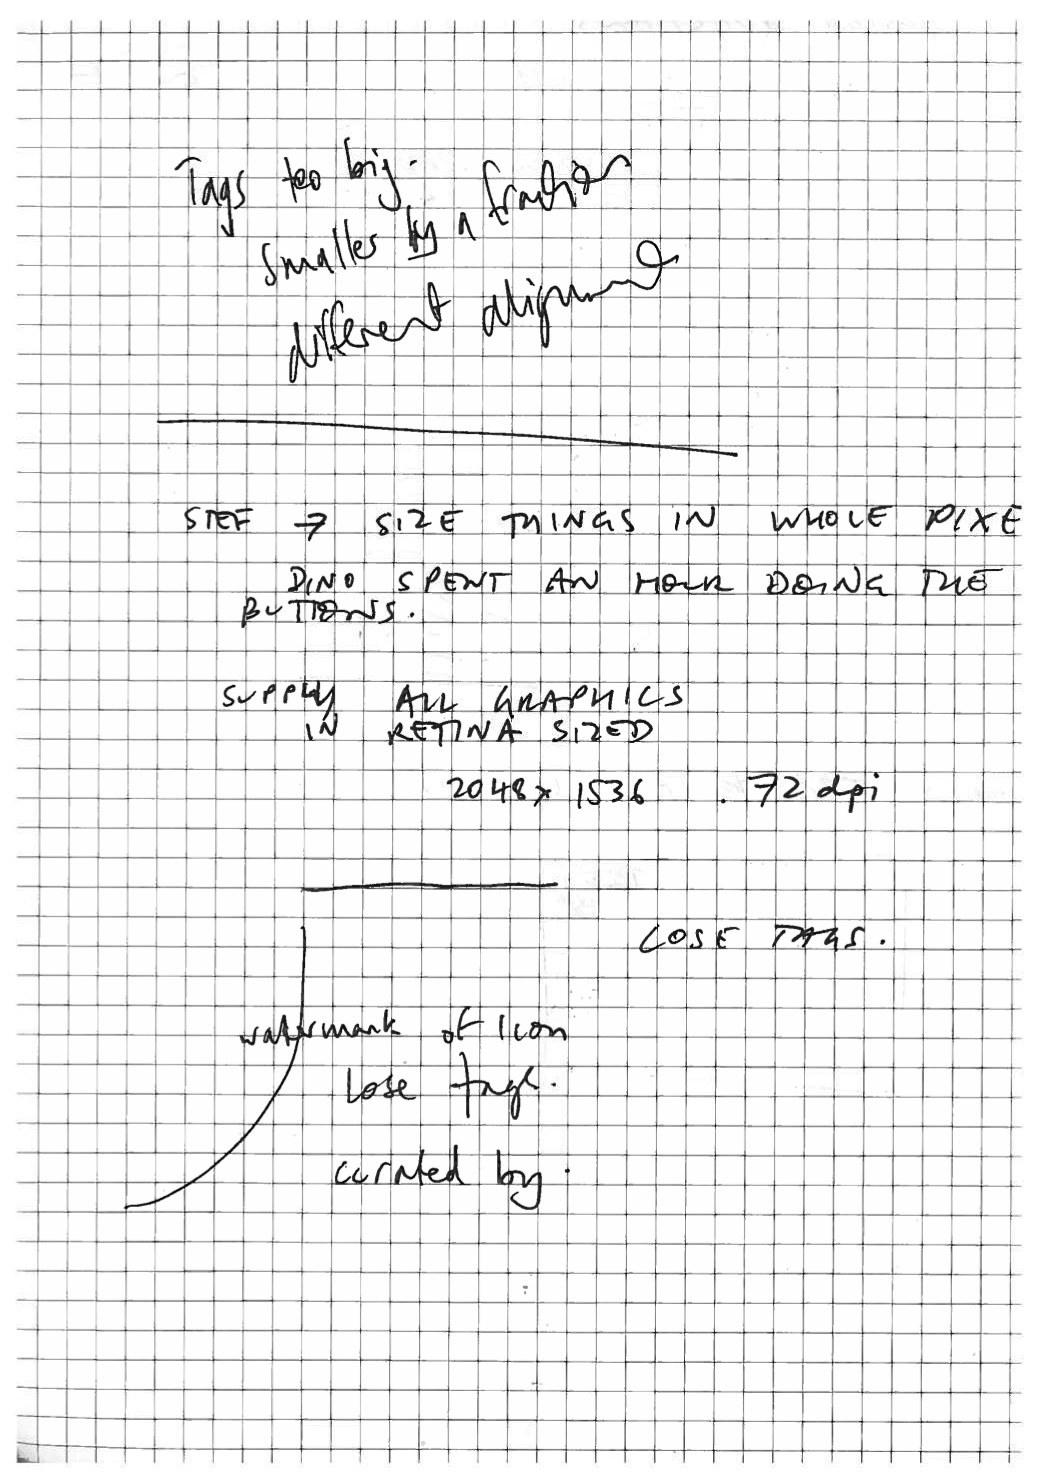 Tags too big.
smaller by a fraction
different alignment
STEF → SIZE THINGS IN WHOLE PIXE
DINO SPENT AN HOUR DOING THE
BUTTONS.
SUPPLY ALL GRAPHICS
IN RETINA SIZED
2048 x 1536 . 72 dpi
LOSE TAGS.
watermark of icon
lose tags.
curated by.